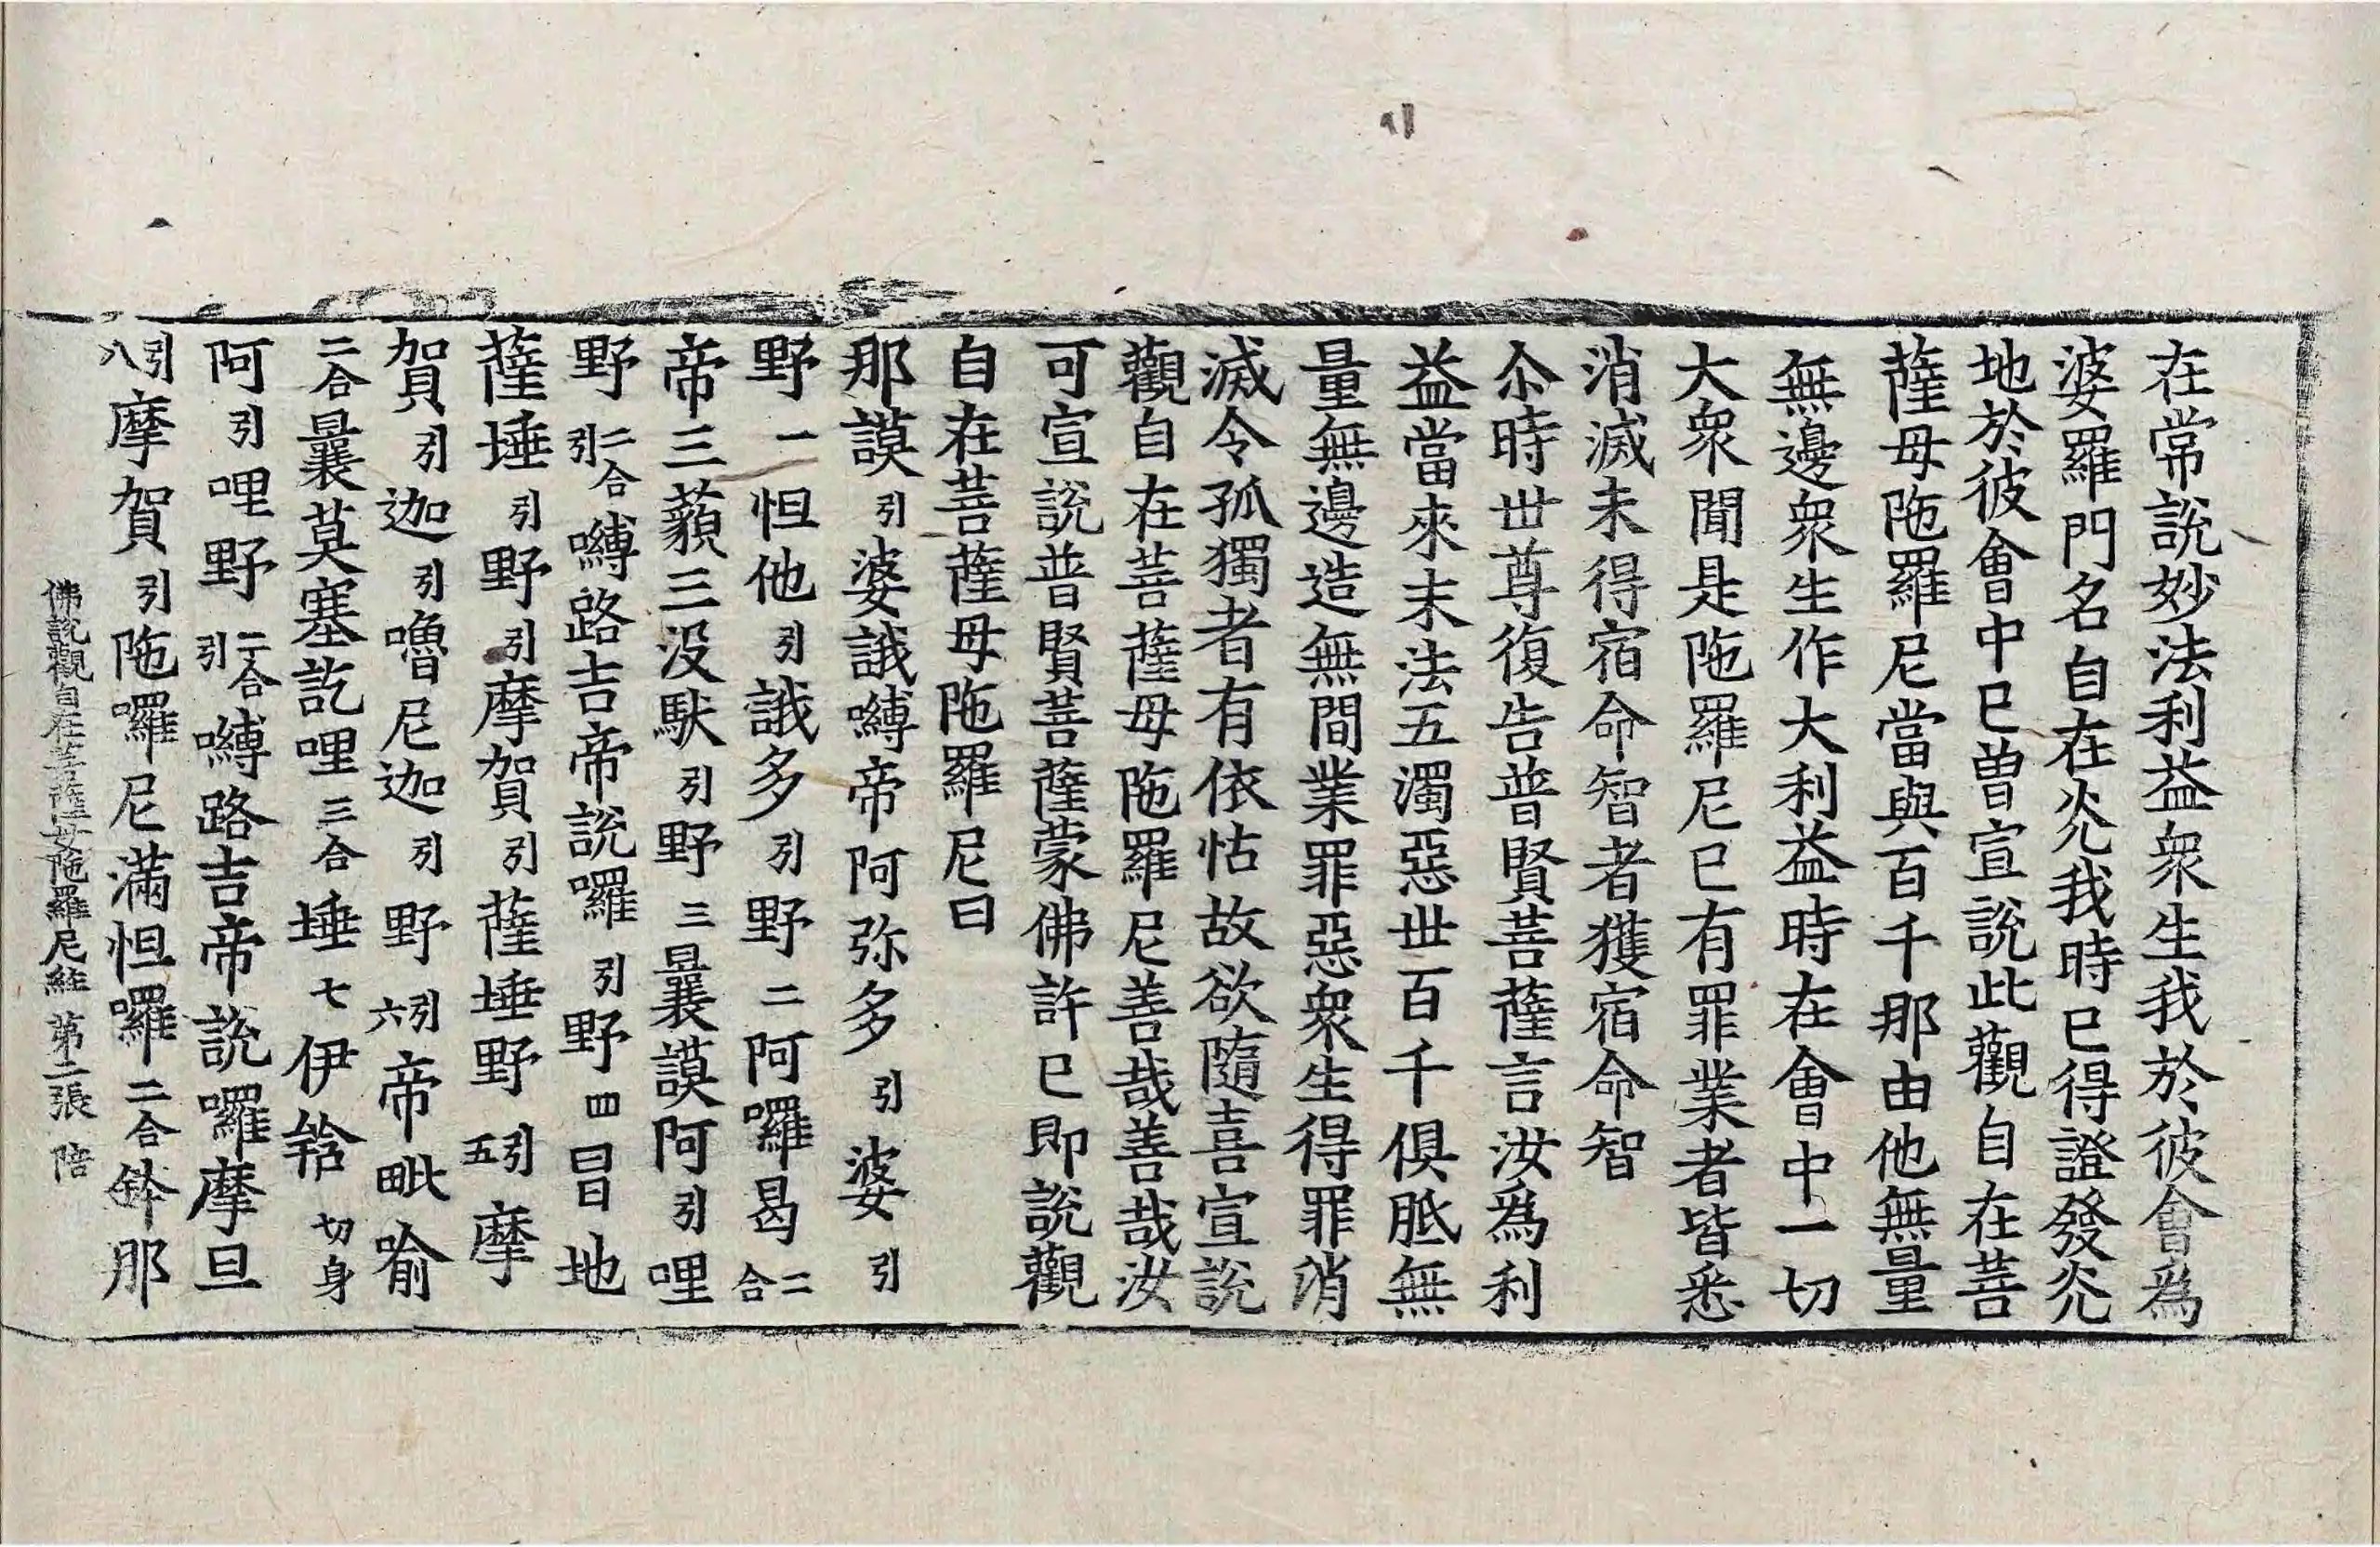 在常說妙法利益衆生我於彼會爲
婆羅門名自在光我時已得證發光
地於彼會中已曾宣說此觀自在菩
薩母陁羅尼當與百千那由他無量
無邊衆生作大利益時在會中一切
大衆聞是陁羅尼已有罪業者皆悉
消滅未得宿命智者獲宿命智
尒時世尊復告普賢菩薩言汝爲利
益當來末法五濁惡世百千俱胝無
量無邊造無間業罪惡衆生得罪消
滅令孤獨者有依怙故欲隨喜宣說
觀自在菩薩母陁羅尼善哉善哉汝
可宣說普賢菩薩蒙佛許已即說觀
自在菩薩母陁羅尼曰
那謨引婆誐嚩帝阿弥多引婆引
野一怛他引誐多引野二阿囉曷二合
帝三藐三没馱引野三曩謨阿引哩
野二合引嚩路吉帝說囉引野四冒地
薩埵引野引摩賀引薩埵野引五摩
賀引迦引嚕尼迦引野引六帝毗喻
二合曩莫塞訖哩三合埵七伊𤚥切身
阿引哩野二合引嚩路吉帝說囉摩旦
引八摩賀引陁囉尼滿怛囉二合鉢那
佛說觀自在菩薩母陁羅尼經 第二張 陪